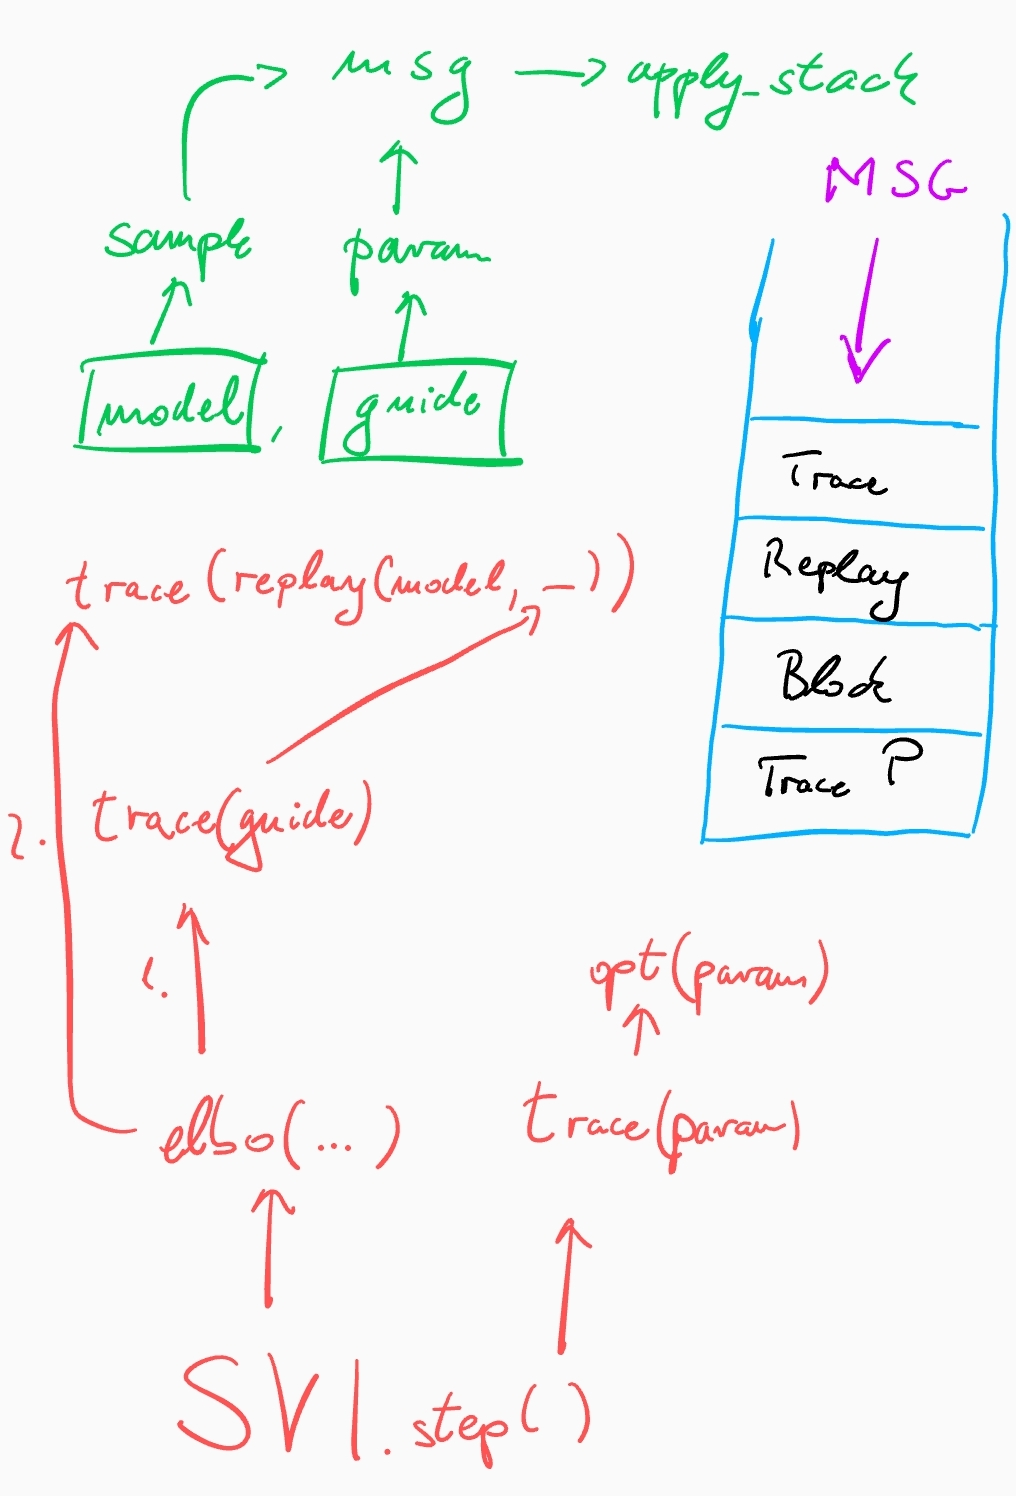 msg → apply_stack
MSG
sample
param
model,
guide
Trace
Replay
Block
Trace P
trace(replay(model, _))
trace(guide)
2.
1.
opt(param)
elbo(...)
trace(param)
SVI.step()